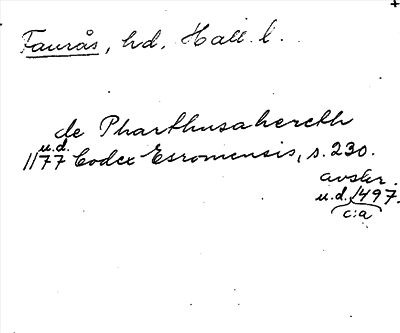 Faurås, hd. Hall. l.
de Pharthusahereth
u.d.
1177 Codex Esromensis, s. 230.
avskr.
u.d. 1497.
c:a